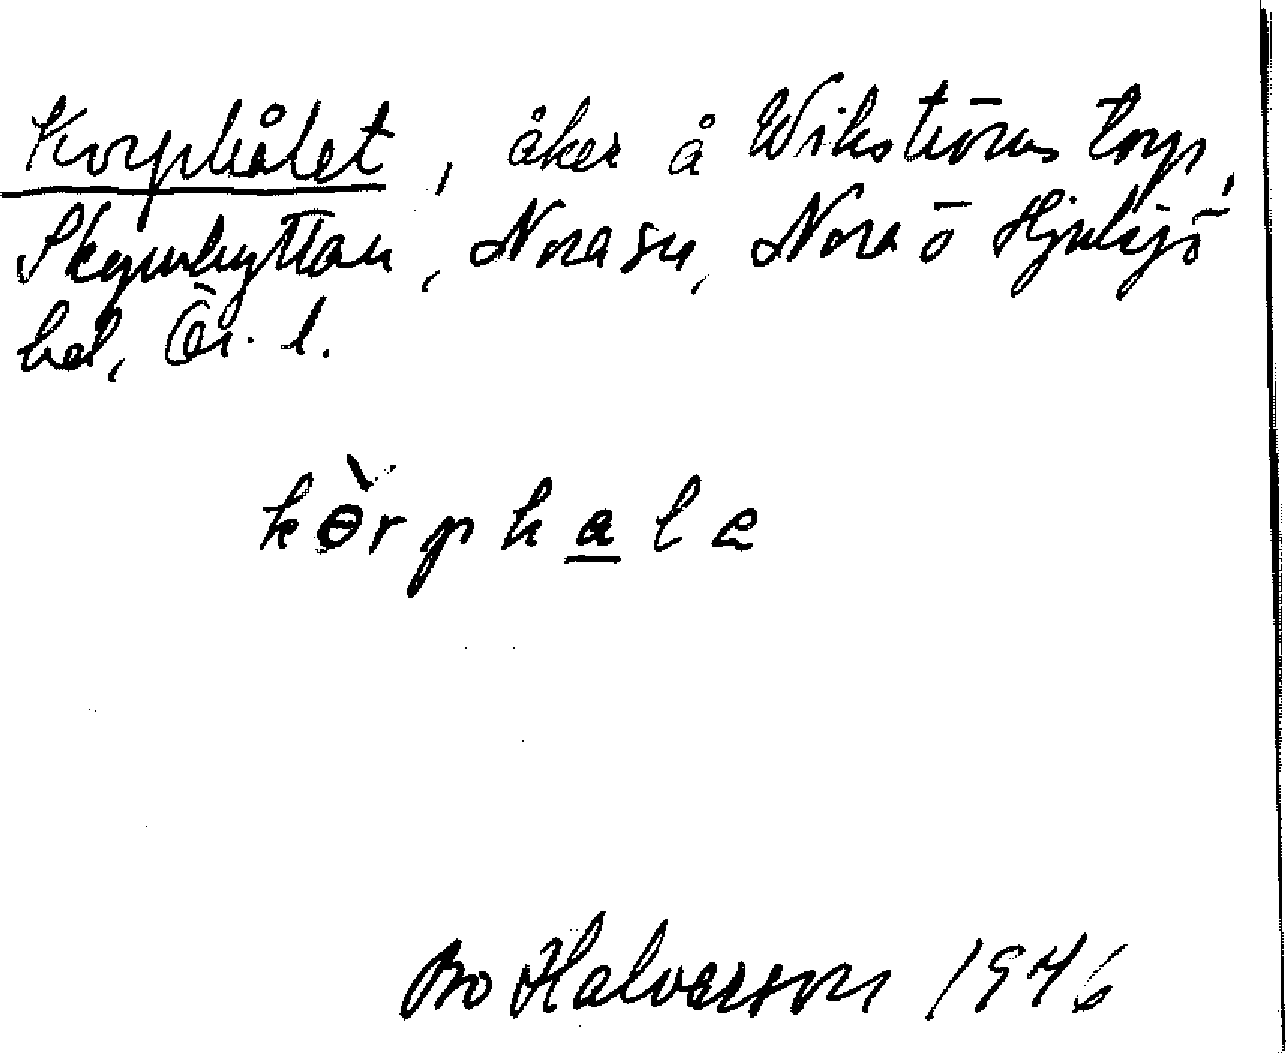 Korphålet, åker å Wikströms torp,
Skymhyttan, Nora sn, Nora ō Hjulsjö
hd, Ör. l.
kɵ̀rphalə
Bo Halvarson 1946